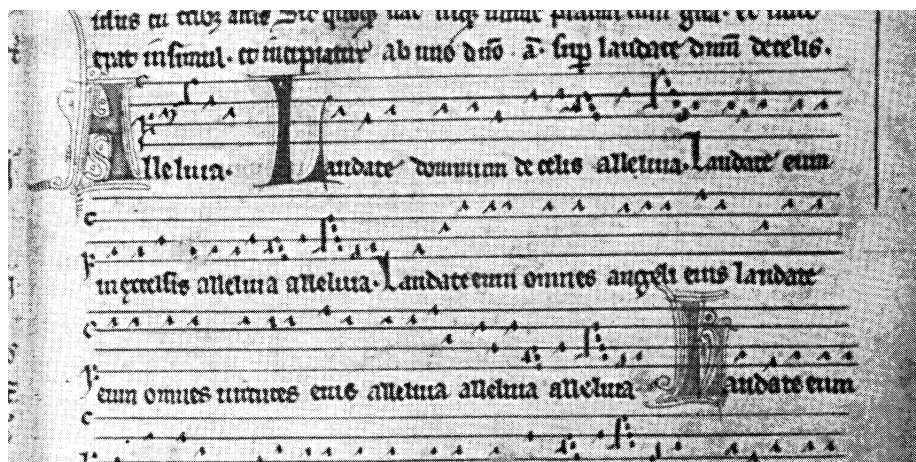 erit insimul. et incipiatur ab uno dño. a. sup laudate dnm de celis.
Alleluia. Laudate dominum de celis alleluia. Laudate eum
in excelsis alleluia alleluia. Laudate eum omnes angeli eius laudate
eum omnes uirtutes eius alleluia alleluia alleluia Laudate eum